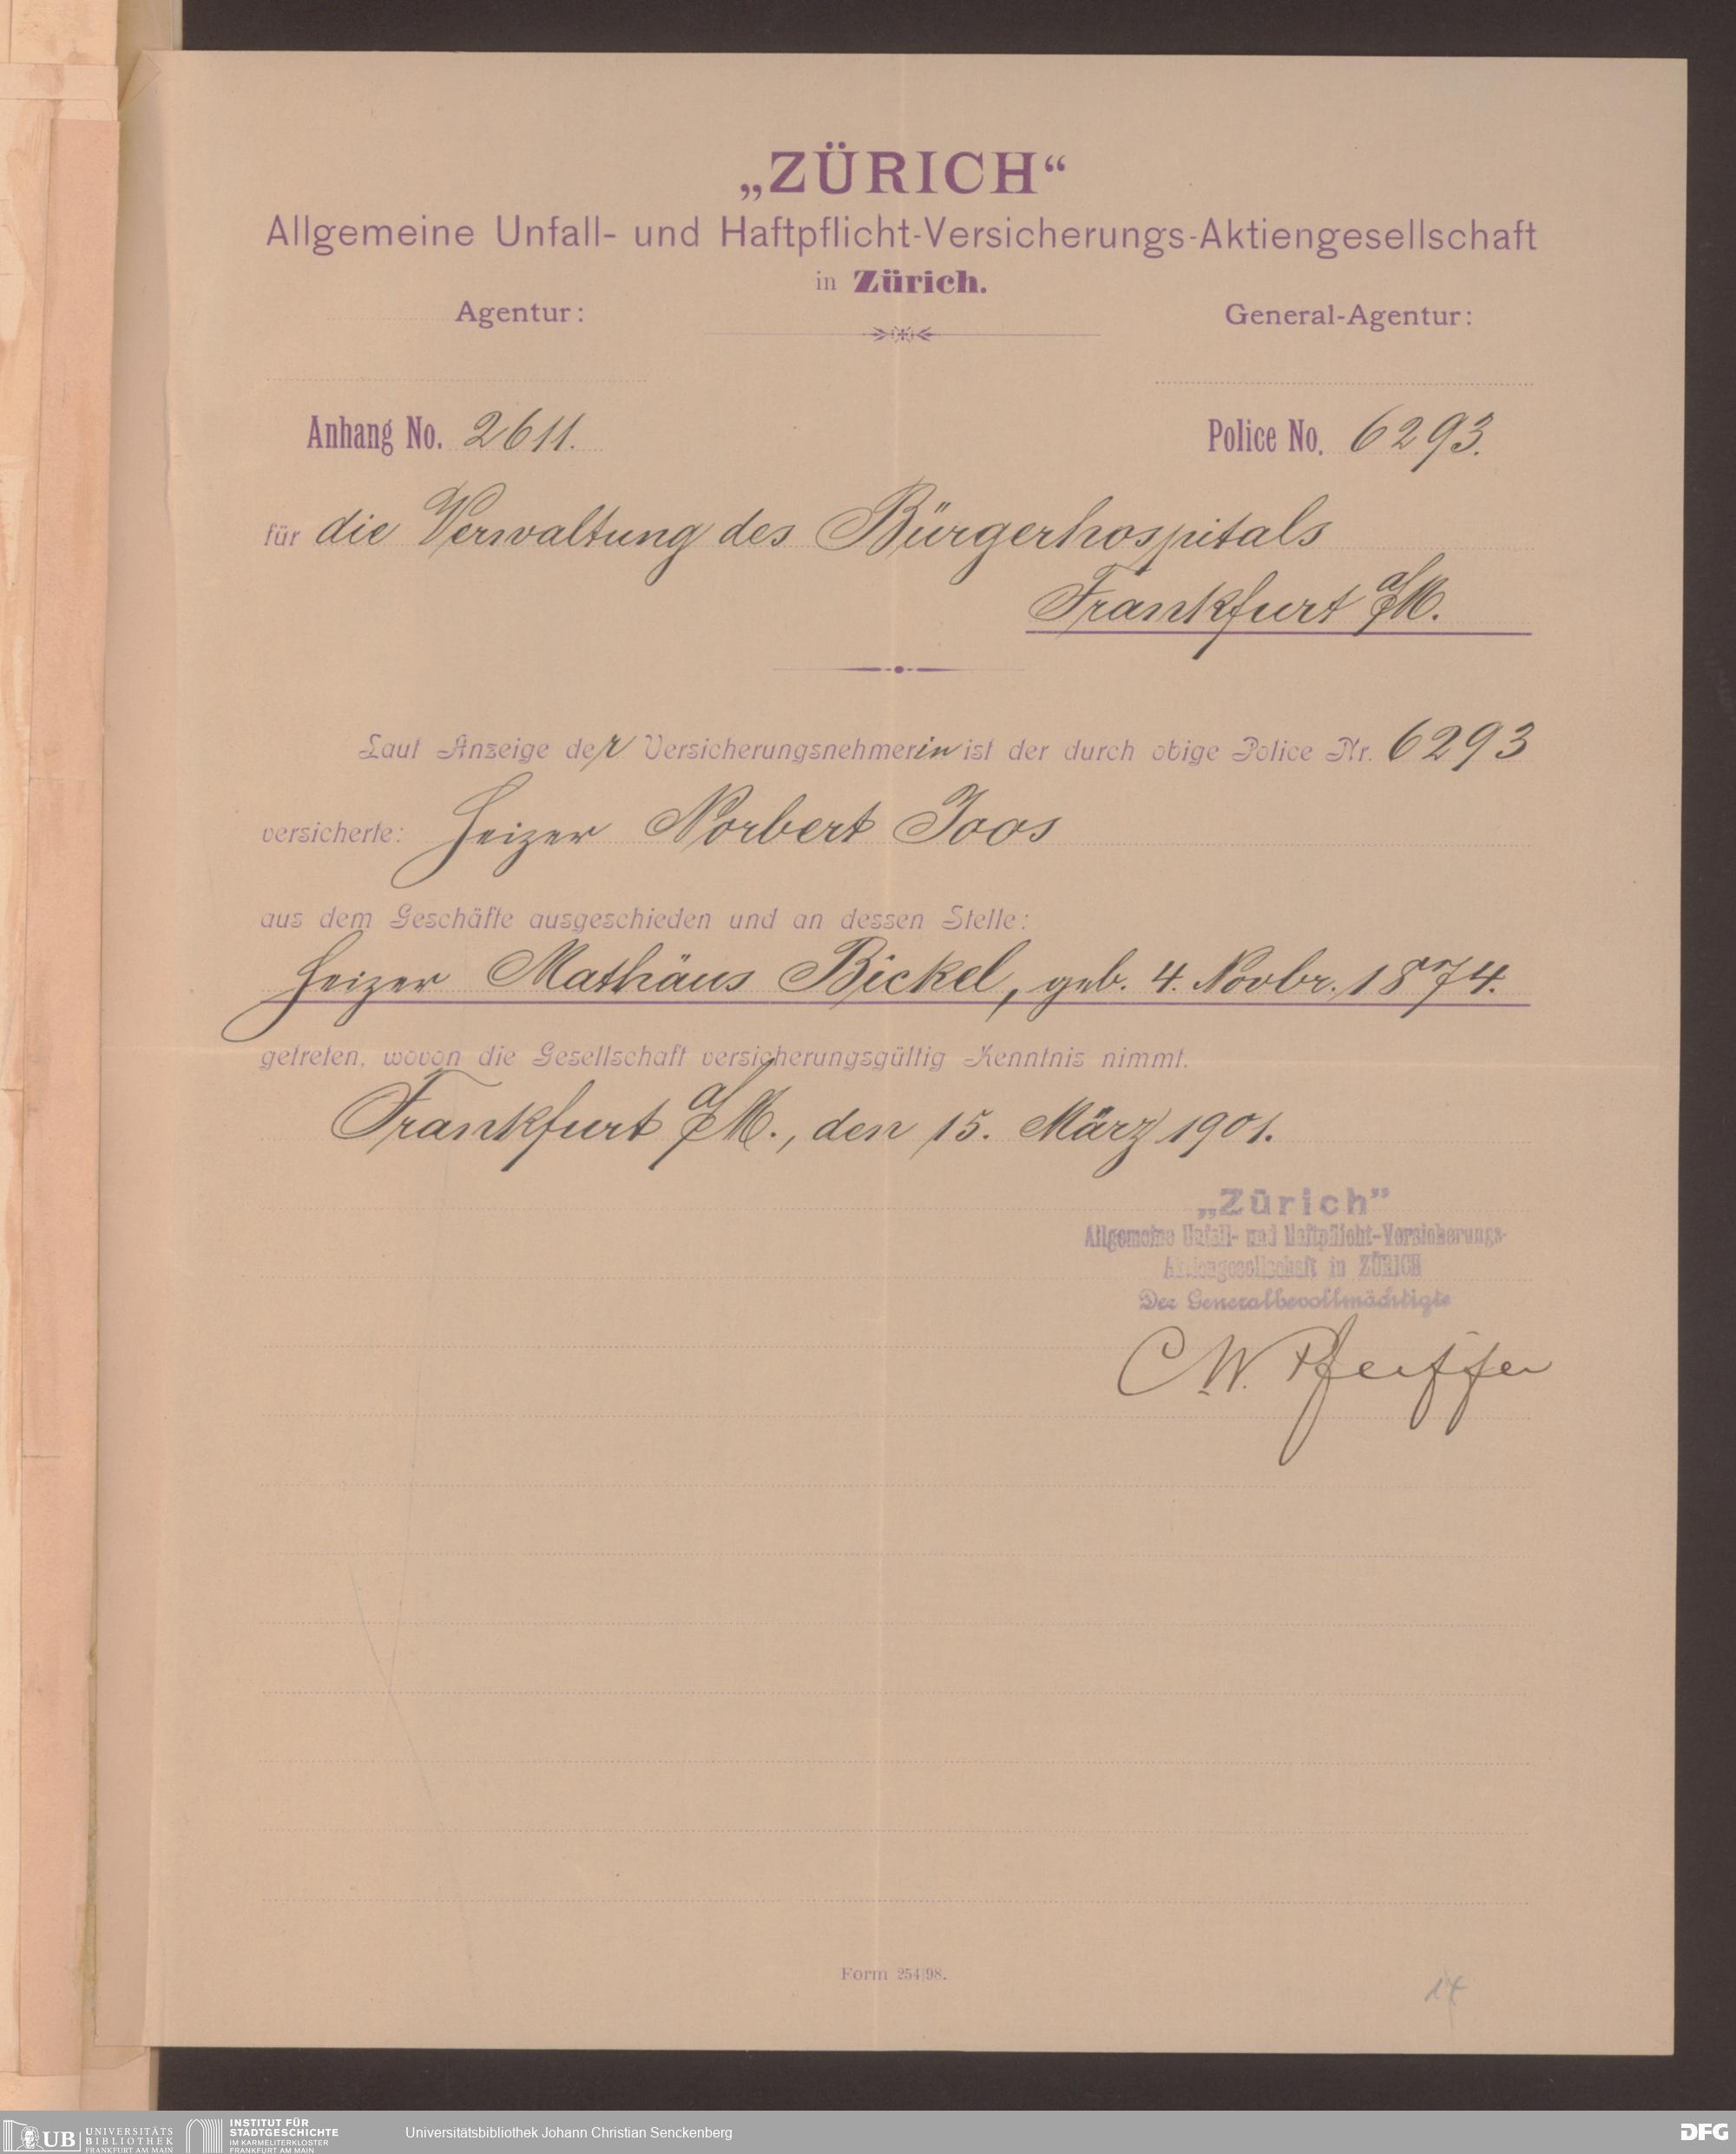 „ZÜRICH“
Allgemeine Unfall- und Haftpflicht-Versicherungs-Aktiengesellschaft
in Zürich.
Agentur:
General-Agentur:
Anhang No. 2611.
Police No. 6293.
für die Verwaltung des Bürgerhospitals
Frankfurt a/M.
Laut Anzeige der Versicherungsnehmerin ist der durch obige Police Nr. 6293
versicherte: Heizer Norbert Joos
aus dem Geschäfte ausgeschieden und an dessen Stelle:
Heizer Mathäus Bickel, geb. 4. Novbr. 1874.
getreten, wovon die Gesellschaft versicherungsgültig Kenntnis nimmt.
Frankfurt a/M., den 15. März 1901.
„Zürich”
Allgemeine Unfall- und Haftpflicht-Versicherungs-
Aktiengesellschaft in ZÜRICH
Der Generalbevollmächtigte
C. W. Pfeiffer
Form 254/98.
14
UB UNIVERSITÄTS
BIBLIOTHEK
FRANKFURT AM MAIN
INSTITUT FÜR
STADTGESCHICHTE
IM KARMELITERKLOSTER
FRANKFURT AM MAIN
Universitätsbibliothek Johann Christian Senckenberg
DFG